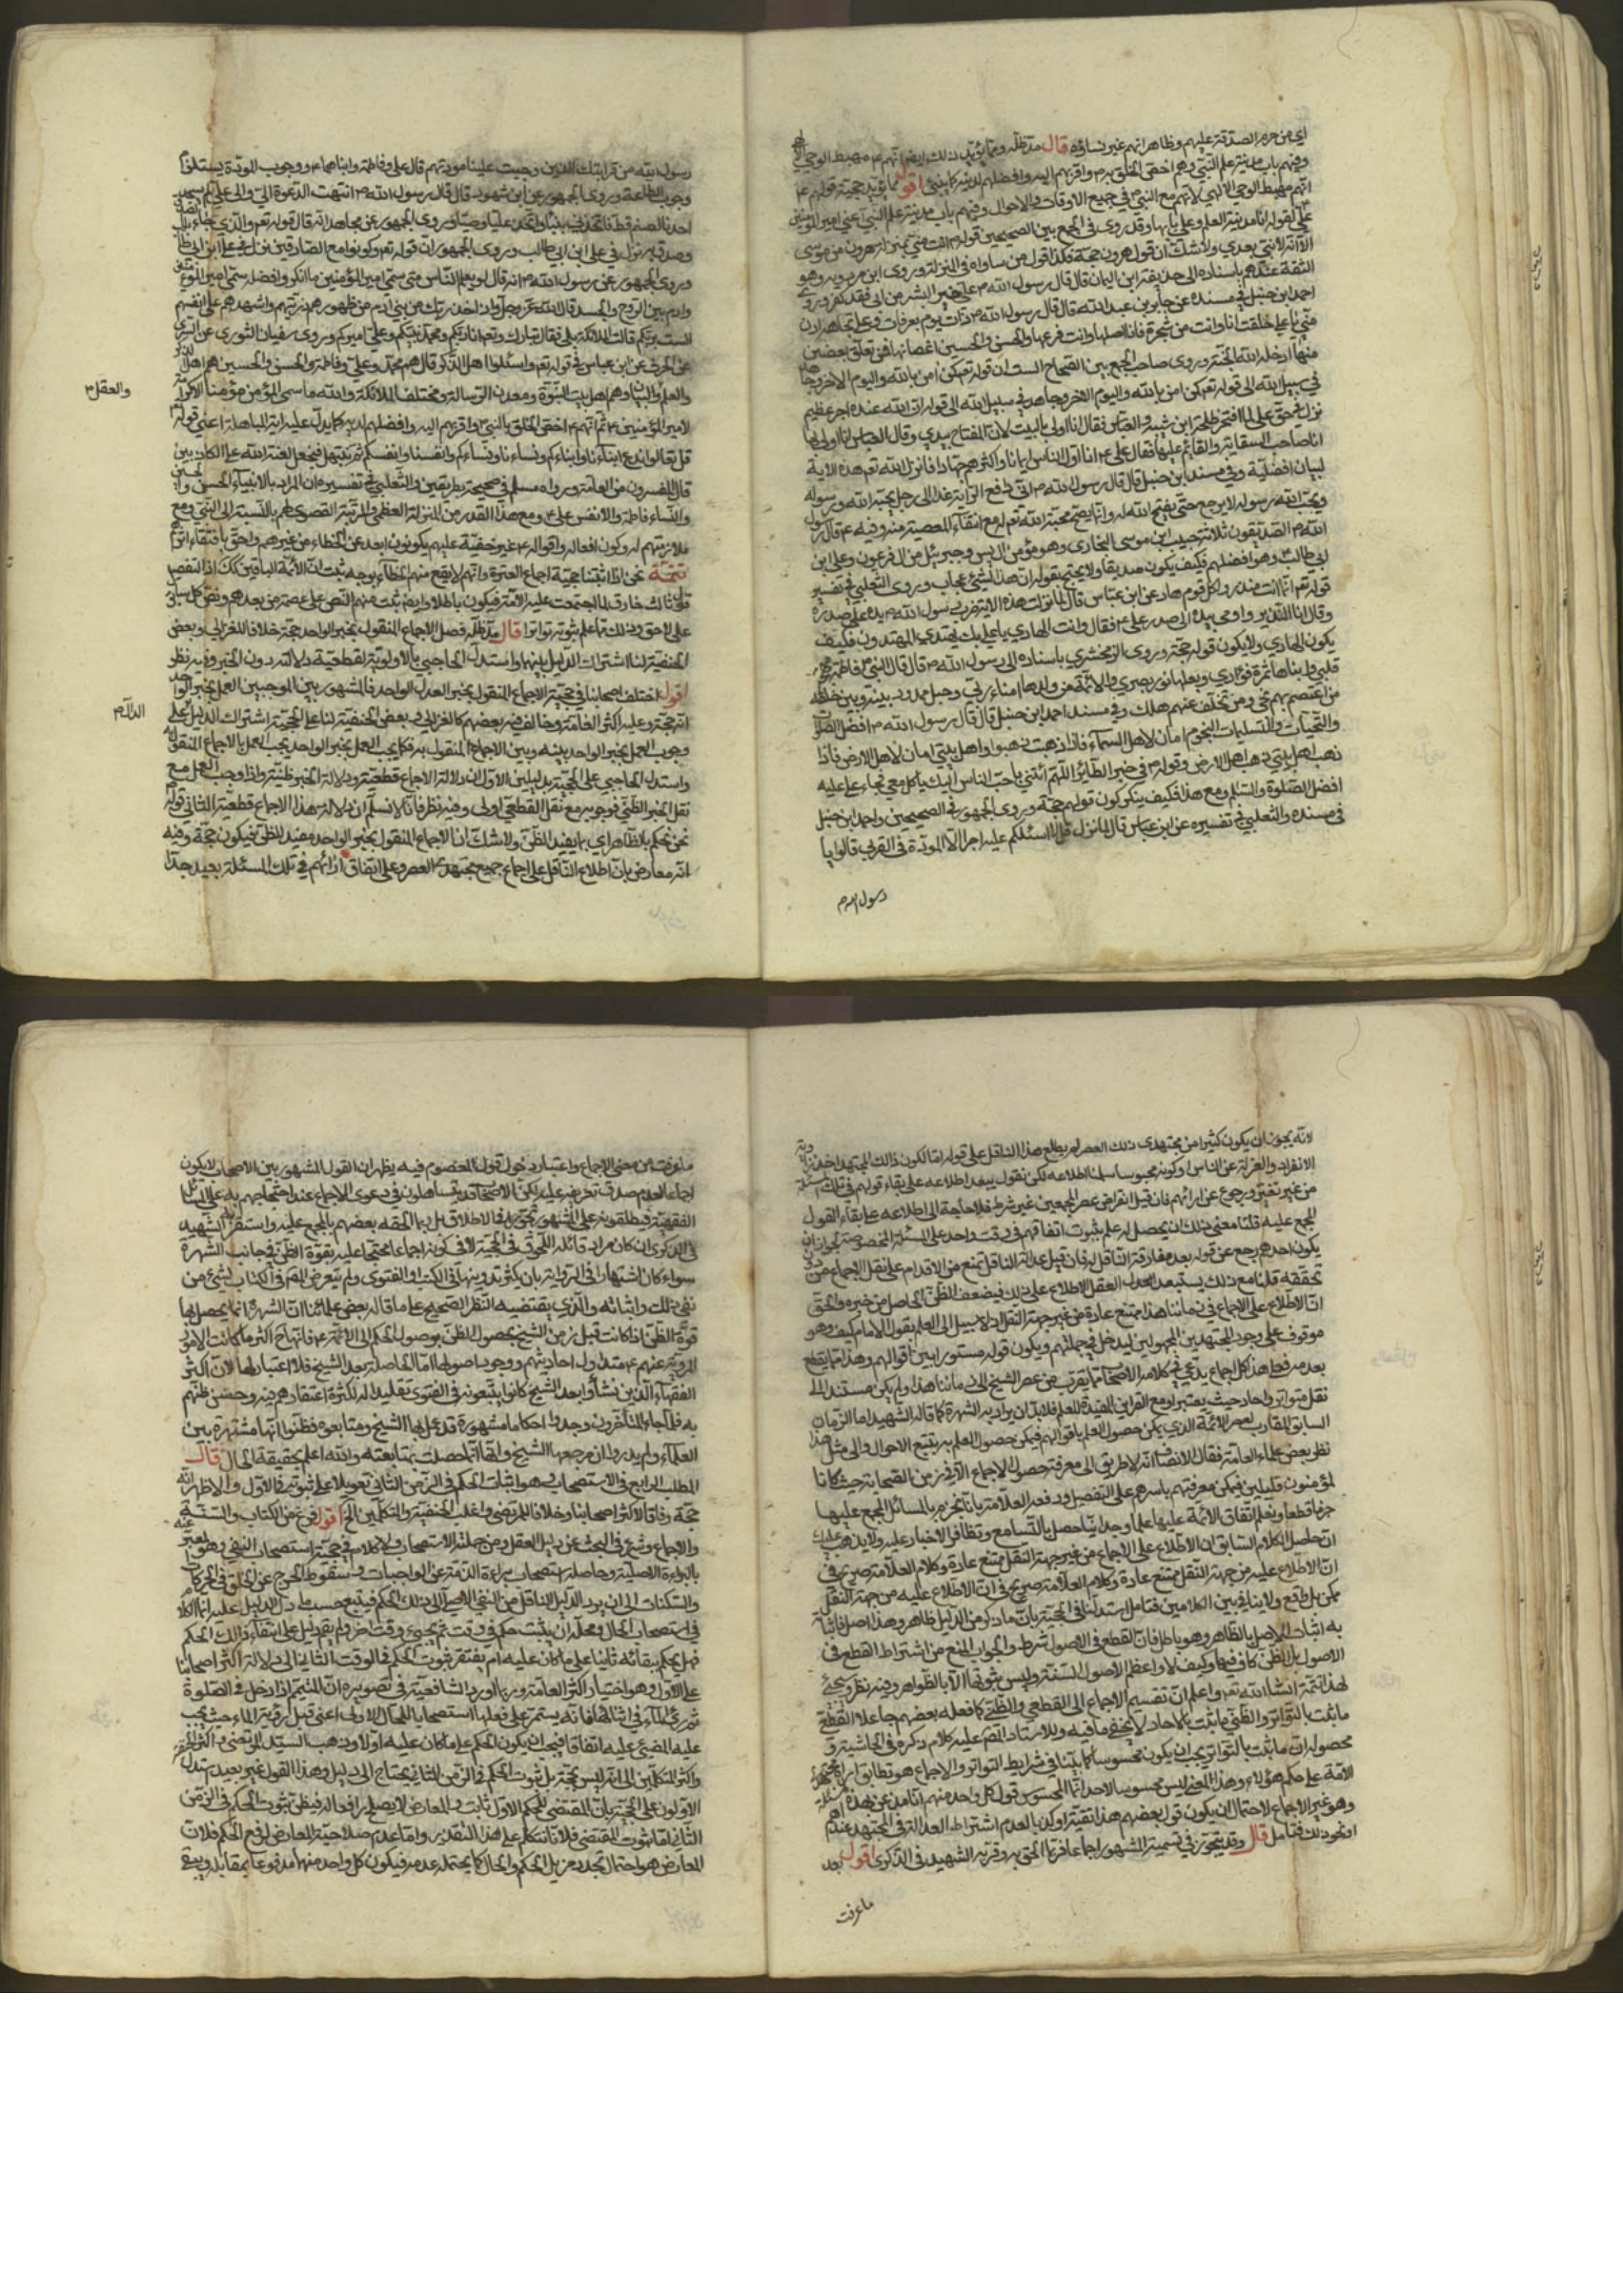 اي من حرم الصدقة عليهم وظاهر انهم غير نساؤه قال مد ظله ومما يؤيد ذلك ايضا انهم ع مهبط الوحي
وفيهم باب مدينة علم النبي وهم اخص الخلق به م واقربهم اليه وافضلهم لديه اقول مما يؤيد حجية قولهم ع
انهم مهبط الوحي الالهي لانهم مع النبي م في جميع الاوقات والاحوال وفيهم باب مدينة علم النبي اعني امير المؤمنين
علي لقوله انا مدينة العلم وعلي بابها وقد روى في الجمع بين الصحيحين قوله م انت مني بمنزلة هرون من موسى
الا انه لا نبي بعدي ولا شك ان قول هرون حجة فكذا قول من ساواه في المنزلة وروى ابن مردويه وهو
الثقة عندهم باسناده الى حذيفة ابن اليمان قال قال رسول الله م علي خير البشر من ابى فقد كفر وروى
احمد ابن حنبل في مسنده عن جابر بن عبد الله قال قال رسول الله م ذات يوم بعرفات وعلي تجاهه ادن
مني يا علي خلقت انا وانت من شجرة فانا اصلها وانت فرعها والحسن والحسين اغصانها فمن تعلق بغصن
منها ادخله الله الجنة وروى صاحب الجمع بين الصحاح الست ان قوله تع كمن امن بالله واليوم الاخر وجاهد
في سبيل الله الى قوله تع كمن امن بالله واليوم الاخر وجاهد في سبيل الله الى قوله ان الله عنده اجر عظيم
نزل في حق علي لما افتخر طلحة ابن شيبة والعباس فقال انا اولى بالبيت لان المفتاح بيدي وقال العباس انا اولى
انا صاحب السقاية والقائم عليها فقال علي ع انا اول الناس ايمانا واكثرهم جهادا فانزل الله تع هذه الاية
لبيان افضليته وفي مسند ابن حنبل قال قال رسول الله م اني دافع الراية غدا الى رجل يحبه الله ورسوله
ويحب الله ورسوله لا يرجع حتى يفتح الله له وانما يصح محبة الله تعم له مع انتفاء المعصية منه وفيه ع قال رسول
الله م الصديقون ثلاثة حبيب ابن موسى النجار وهو مؤمن ال يس وحزبيل من ال فرعون وعلي ابن
ابي طالب وهو افضلهم فكيف يكون صديقا ولا يحتج بقوله ان هذا لشيء عجاب وروى الثعلبي في تفسير
قوله تع انما انت منذر ولكل قوم هاد عن ابن عباس قال لما نزلت هذه الاية ضرب رسول الله م يده على صدره
وقال انا المنذر واومى بيده الى صدر علي ع فقال وانت الهادي يا علي بك يهتدي المهتدون فكيف
يكون الهادي ولا يكون قوله حجة وروى الزمخشري باسناده الى رسول الله م قال قال النبي م فاطمة مهجة
قلبي وابناها ثمرة فؤادي وبعلها نور بصري والائمة من ولدها امناء ربي وحبل ممدود بينه وبين خلقه
من اعتصم بهم نجى ومن تخلف عنهم هلك وفي مسند احمد ابن حنبل قال قال رسول الله م افضل الصلوات
والتحيات والتسليمات النجوم امان لاهل السماء فاذا ذهبت ذهبوا واهل بيتي امان لاهل الارض فاذا
ذهب اهل بيتي ذهب اهل الارض وقوله م في خبر الطائر اللهم ائتني باحب الناس اليك ياكل معي فجاء علي عليه
افضل الصلوة والسلم ومع هذا فكيف ينكر كون قولهم حجة وروى الجمهور في الصحيحين واحمد ابن حنبل
في مسنده والثعلبي في تفسيره عن ابن عباس قال لما نزل قل لا اسئلكم عليه اجرا الا المودة في القربى قالوا يا
رسول الله م
رسول الله من قرابتك الذين وجبت علينا مودتهم قال علي وفاطمة وابناهما ع ووجوب المودة يستلزم
وجوب الطاعة وروى الجمهور عن ابن مسعود قال قال رسول الله م انتهت الدعوة الي والى علي لم يسجد
احدنا لصنم قط فاتخذني نبيا واتخذ عليا وصيا وروى الجمهور عن مجاهد انه قال قوله تعم والذي جاء بالصدق
وصدق به نزل في علي ابن ابي طالب وروى الجمهور ان قوله تعم وكونوا مع الصادقين نزل في علي ابن ابي طالب
وروى الجمهور عن رسول الله م انه قال لو يعلم الناس متى سمي امير المؤمنين ما انكروا فضله سمي امير المؤمنين
وادم بين الروح والجسد قال الله عز وجل واذ اخذ ربك من بني ادم من ظهورهم ذريتهم واشهدهم على انفسهم
الست بربكم قالت الملائكة بلى فقال تبارك وتعم انا ربكم ومحمد نبيكم وعلي اميركم وروى سفيان الثوري عن السدي
عن الحرث عن ابن عباس في قوله تعم واسئلوا اهل الذكر قال هم محمد وعلي وفاطمة والحسن والحسين هم اهل الذكر
والعلم والبيان وهم اهل بيت النبوة ومعدن الرسالة ومختلف الملائكة والله ما سمي المؤمن مؤمنا الا كرامة
والعقل م
لامير المؤمنين ع ثم انهم ع اخص الخلق بالنبي م واقربهم اليه وافضلهم لديه كما يدل عليه اية المباهلة اعني قوله
قل تعالوا ندع ابناءنا وابناءكم ونساءنا ونساءكم وانفسنا وانفسكم ثم نبتهل فنجعل لعنة الله على الكاذبين
قال المفسرون من العامة ورواه مسلم في صحيحه بطريقين والثعلبي في تفسيره ان المراد بالابناء الحسن والحسين
والنساء فاطمة والانفس علي ع ومع هذا القدر من المنزلة العظمى والمرتبة القصوى لهم بالنسبة الى النبي ومع
ملازمتهم له وكون افعاله واقواله ع غير خفية عليهم يكونون ابعد عن الخطاء من غيرهم واحق باقتفاء اثرهم
تتمة نحن اذا اثبتنا حجية اجماع العترة وانهم لا يقع منهم الخطاء بوجه ثبت ان الائمة الباقين كك اذ النقص
قول ثالث خارق لما اجتمعت عليه الامة فيكون باطلا وايضا ثبت منهم النص على عصمة من بعدهم ونص كل سابق
على لاحق وذلك مما علم ثبوته تواترا قال مد ظله فصل الاجماع المنقول بخبر الواحد حجة خلافا للغزالي وبعض
الحنفية لنا اشتراك الدليل بينهما واستدل الحاجبي بالاولوية لقطعية دلالته دون الخبر وفيه نظر
اقول اختلف اصحابنا في حجية الاجماع المنقول بخبر العدل الواحد فالمشهور بين الموجبين العمل بخبر الواحد
الدال م
انه حجة وعليه اكثر العامة وخالف فيه بعضهم كالغزالي وبعض الحنفية لنا على الحجية اشتراك الدليل على
وجوب العمل بخبر الواحد بينه وبين الاجماع المنقول به فكما يجب العمل بخبر الواحد يجب العمل بالاجماع المنقول
واستدل الحاجبي على الحجية بدليلين الاول ان دلالة الاجماع قطعية ودلالة الخبر ظنية واذا وجب العمل مع
نقل الخبر الظني فوجوبه مع نقل القطعي اولى وفيه نظر فانا لا نسلم ان دلالة هذا الاجماع قطعية الثاني قوله
نحن نحكم بالظاهر اي بما يفيد الظن ولا شك ان الاجماع المنقول بخبر الواحد مفيد للظن فيكون حجة وفيه
انه معارض بان اطلاع الناقل على اجماع جميع مجتهدي العصر وعلى اتفاق ارائهم في تلك المسئلة بعيد جدا
لانه يجوز ان يكون كثيرا من مجتهدي ذلك العصر لم يطلع هذا الناقل على قوله اما لكون ذلك المجتهد اخذ
الانفراد والعزلة عن الناس او كونه محبوسا سلمنا اطلاعه لكن نقول يبعد اطلاعه على بقاء قولهم في تلك المسئلة
من غير تغير ورجوع عن ارائهم فان قيل انقراض عصر المجمعين غير شرط فلا حاجة الى اطلاعه على بقاء القول
المجمع عليه قلنا معنى ذلك ان يحصل له علم بثبوت اتفاقهم في وقت واحد على المسئلة المخصوصة لجواز ان
يكون احدهم رجع عن قوله بعد مفارقة الناقل له فان قيل عدالة الناقل تمنع من الاقدام على نقل الاجماع من دون
تحققه قلنا مع ذلك يستبعد العقل الاطلاع على ذلك فيضعف الظن الحاصل من خبره والحق
ان الاطلاع على الاجماع في زماننا هذا ممتنع عادة من غير جهة النقل اذ لا سبيل الى العلم بقول الامام كيف وهو
موقوف على وجود المجتهدين المجهولين ليدخل في جملتهم ويكون قوله مستورا بين اقوالهم وهذا مما يقطع
بعدمه فعلى هذا كل اجماع يدعي في كلام الاصحاب مما يقرب من عصر الشيخ الى زماننا هذا ولم يكن مستندا الى
نقل متواتر واحاد حيث يعتبر او مع القرائن المفيدة للعلم فلا بد ان يراد به الشهرة كما قاله الشهيد اما الزمان
السابق المقارب لعصر الائمة الذي يمكن حصول العلم باقوالهم فيمكن حصول العلم به بتتبع الاحوال والى مثل هذا
نظر بعض علماء العامة فقال الانصاف انه لا طريق الى معرفة حصول الاجماع الا في زمن الصحابة حيث كانا
لمؤمنون قليلين فيمكن معرفتهم باسرهم على التفصيل ودفعه العلامة بانا نجزم بالمسائل المجمع عليها
جزما قطعا ونعلم اتفاق الائمة عليها علما وجدانيا حصل بالتسامع وتظافر الاخبار عليه ولا يذهب عليك
ان حاصل الكلام السابق ان الاطلاع على الاجماع من غير جهة النقل ممتنع عادة وكلام العلامة صريح في
ان الاطلاع عليه من جهة النقل ممتنع عادة وكلام العلامة صريح في ان الاطلاع عليه من جهة النقل
ممكن بل واقع ولا ينافي بين الكلامين فتامل استدل نافي الحجية بان ما ذكر من الدليل ظاهر وهذا اصل فاثباته
به اثبات للاصل بالظاهر وهو باطل فان القطع في الاصول شرط والجواب المنع من اشتراط القطع في
الاصول بل الظن كاف فيها وكيف لا واعظم الاصول السنة وليس ثبوتها الا بالظواهر وفيه نظر وسيجئ
لهذا تتمة انشاء الله تعم واعلم ان تقسيم الاجماع الى القطعي والظني كما فعله بعضهم جاعلا القطعي
ما ثبت بالتواتر والظني ما ثبت بالاحاد لا يخفى ما فيه وللاستاد المص عليه كلام ذكره في الحاشية و
محصوله ان ما ثبت بالتواتر يجب ان يكون محسوسا كما بينا في شرايط التواتر والاجماع هو تطابق اراء مجتهدي
الامة على حكم هؤلاء وهذا المعنى ليس محسوسا لاحد انما المحسوس قول كل واحد منهم انا مذعن بهذه المسئلة
وهو غير الاجماع لاحتمال ان يكون قول بعضهم هذا تقية او كذبا لعدم اشتراط العدالة في المجتهد عندهم
او نحو ذلك فتامل قال وقد يتجوز في تسمية المشهور اجماعا فربما الحق به وقربه الشهيد في الذكرى اقول بعد
ما عرفت
ما عرفت من معنى الاجماع واعتبار دخول قول المعصوم فيه يظهر ان القول المشهور بين الاصحاب لا يكون
اجماعا لعدم صدق تعريفه عليه لكن الاصحاب قد يتساهلون في دعوى الاجماع عند احتجاجهم به على المسائل
الفقهية فيطلقونه على المشهور تجوزا في الاطلاق بل ربما الحقه بعضهم بالمجمع عليه واستقر به الشهيد
في الذكرى ان كان مراد قائله اللحوق في الحجية لا في كونه اجماعا محتجا عليه بقوة الظن في جانب الشهرة
سواء كان اشتهارا في الرواية بان يكثر تدوينها في الكتب او الفتوى ولم يتعرض المص في الكتاب لشيء من
نفي ذلك واثباته والذي يقتضيه النظر الصحيح على ما قاله بعض علمائنا ان الشهرة انما يحصل بها
قوة الظن اذا كانت قبل زمن الشيخ لحصول الظن بوصول الحكم الى الائمة ع فانها ح اكثر ما كانت الامور
المروية عنهم ع متداول احاديثهم ووجود اصولها اما الحاصلة بعد الشيخ فلا اعتبار لها لان اكثر
الفقهاء الذين نشأوا بعد الشيخ كانوا يتبعونه في الفتوى تقليدا له لكثرة اعتقادهم فيه وحسن ظنهم
به فلما جاء المتأخرون وجدوا احكاما مشهورة قد عمل بها الشيخ ومتابعوه فظنوا انها مشتهرة بين
العلماء ولم يدروا ان مرجعها الشيخ وانها انما حصلت بمتابعته والله اعلم بحقيقة الحال قال
المطلب الرابع في الاستصحاب هو اثبات الحكم في الزمن الثاني تعويلا على ثبوته في الاول والاظهر انه
حجة وفاقا لاكثر اصحابنا وخلافا للمرتضى واغلب الحنفية والمتكلمين الخ اقول فرغ من الكتاب والسنة
والاجماع وشرع في البحث عن دليل العقل ومن جملته الاستصحاب ولا كلام في حجية استصحاب النفي وهو المعبر عنه
بالبراءة الاصلية وحاصله استصحاب براءة الذمة عن الواجبات وسقوط الحرج عن الخلق في الحركات
والسكنات الى ان يرد الدليل الناقل من النفي الاصلي الى ذلك الحكم فيتبع حسب ما دل الدليل عليه انما الكلام
في استصحاب الحال ومحله ان يثبت حكم في وقت ثم يجيء وقت اخر ولم يقم دليل على انتفاء ذلك الحكم
فهل يحكم ببقائه ثانيا على ما كان عليه ام يفتقر ثبوت الحكم في الوقت الثاني الى دلالة اكثر اصحابنا
على الاول وهو اختيار اكثر العامة وربما اورد الشافعية في تصويره ان المتيمم اذا دخل في الصلوة
ثم رئ الماء في اثنائها فانه يستمر على فعلها استصحابا للحال الاول اعني قبل رؤية الماء حيث يجب
عليه المضي عليه اتفاقا فيجب ان يكون الحكم على ما كان عليه اولا وذهب السيد المرتضى واكثر الحنفية
واكثر المتكلمين الى انه ليس بحجة بل ثبوت الحكم في الزمن الثاني يحتاج الى دليل وهذا القول غير بعيد استدل
الاولون على الحجية بان المقتضي للحكم الاول ثابت والمعارض لا يصلح رافعا له فيظن ثبوت الحكم في الزمن
الثاني اما ثبوت المقتضي فلانا نتكلم على هذا التقدير واما عدم صلاحية المعارض لرفع الحكم فلان
المعارض هو احتمال تجدد مزيل الحكم والحال كما يحتمله عدمه فيكون كل واحد منهما مدفوعا بمقابله ويبقى